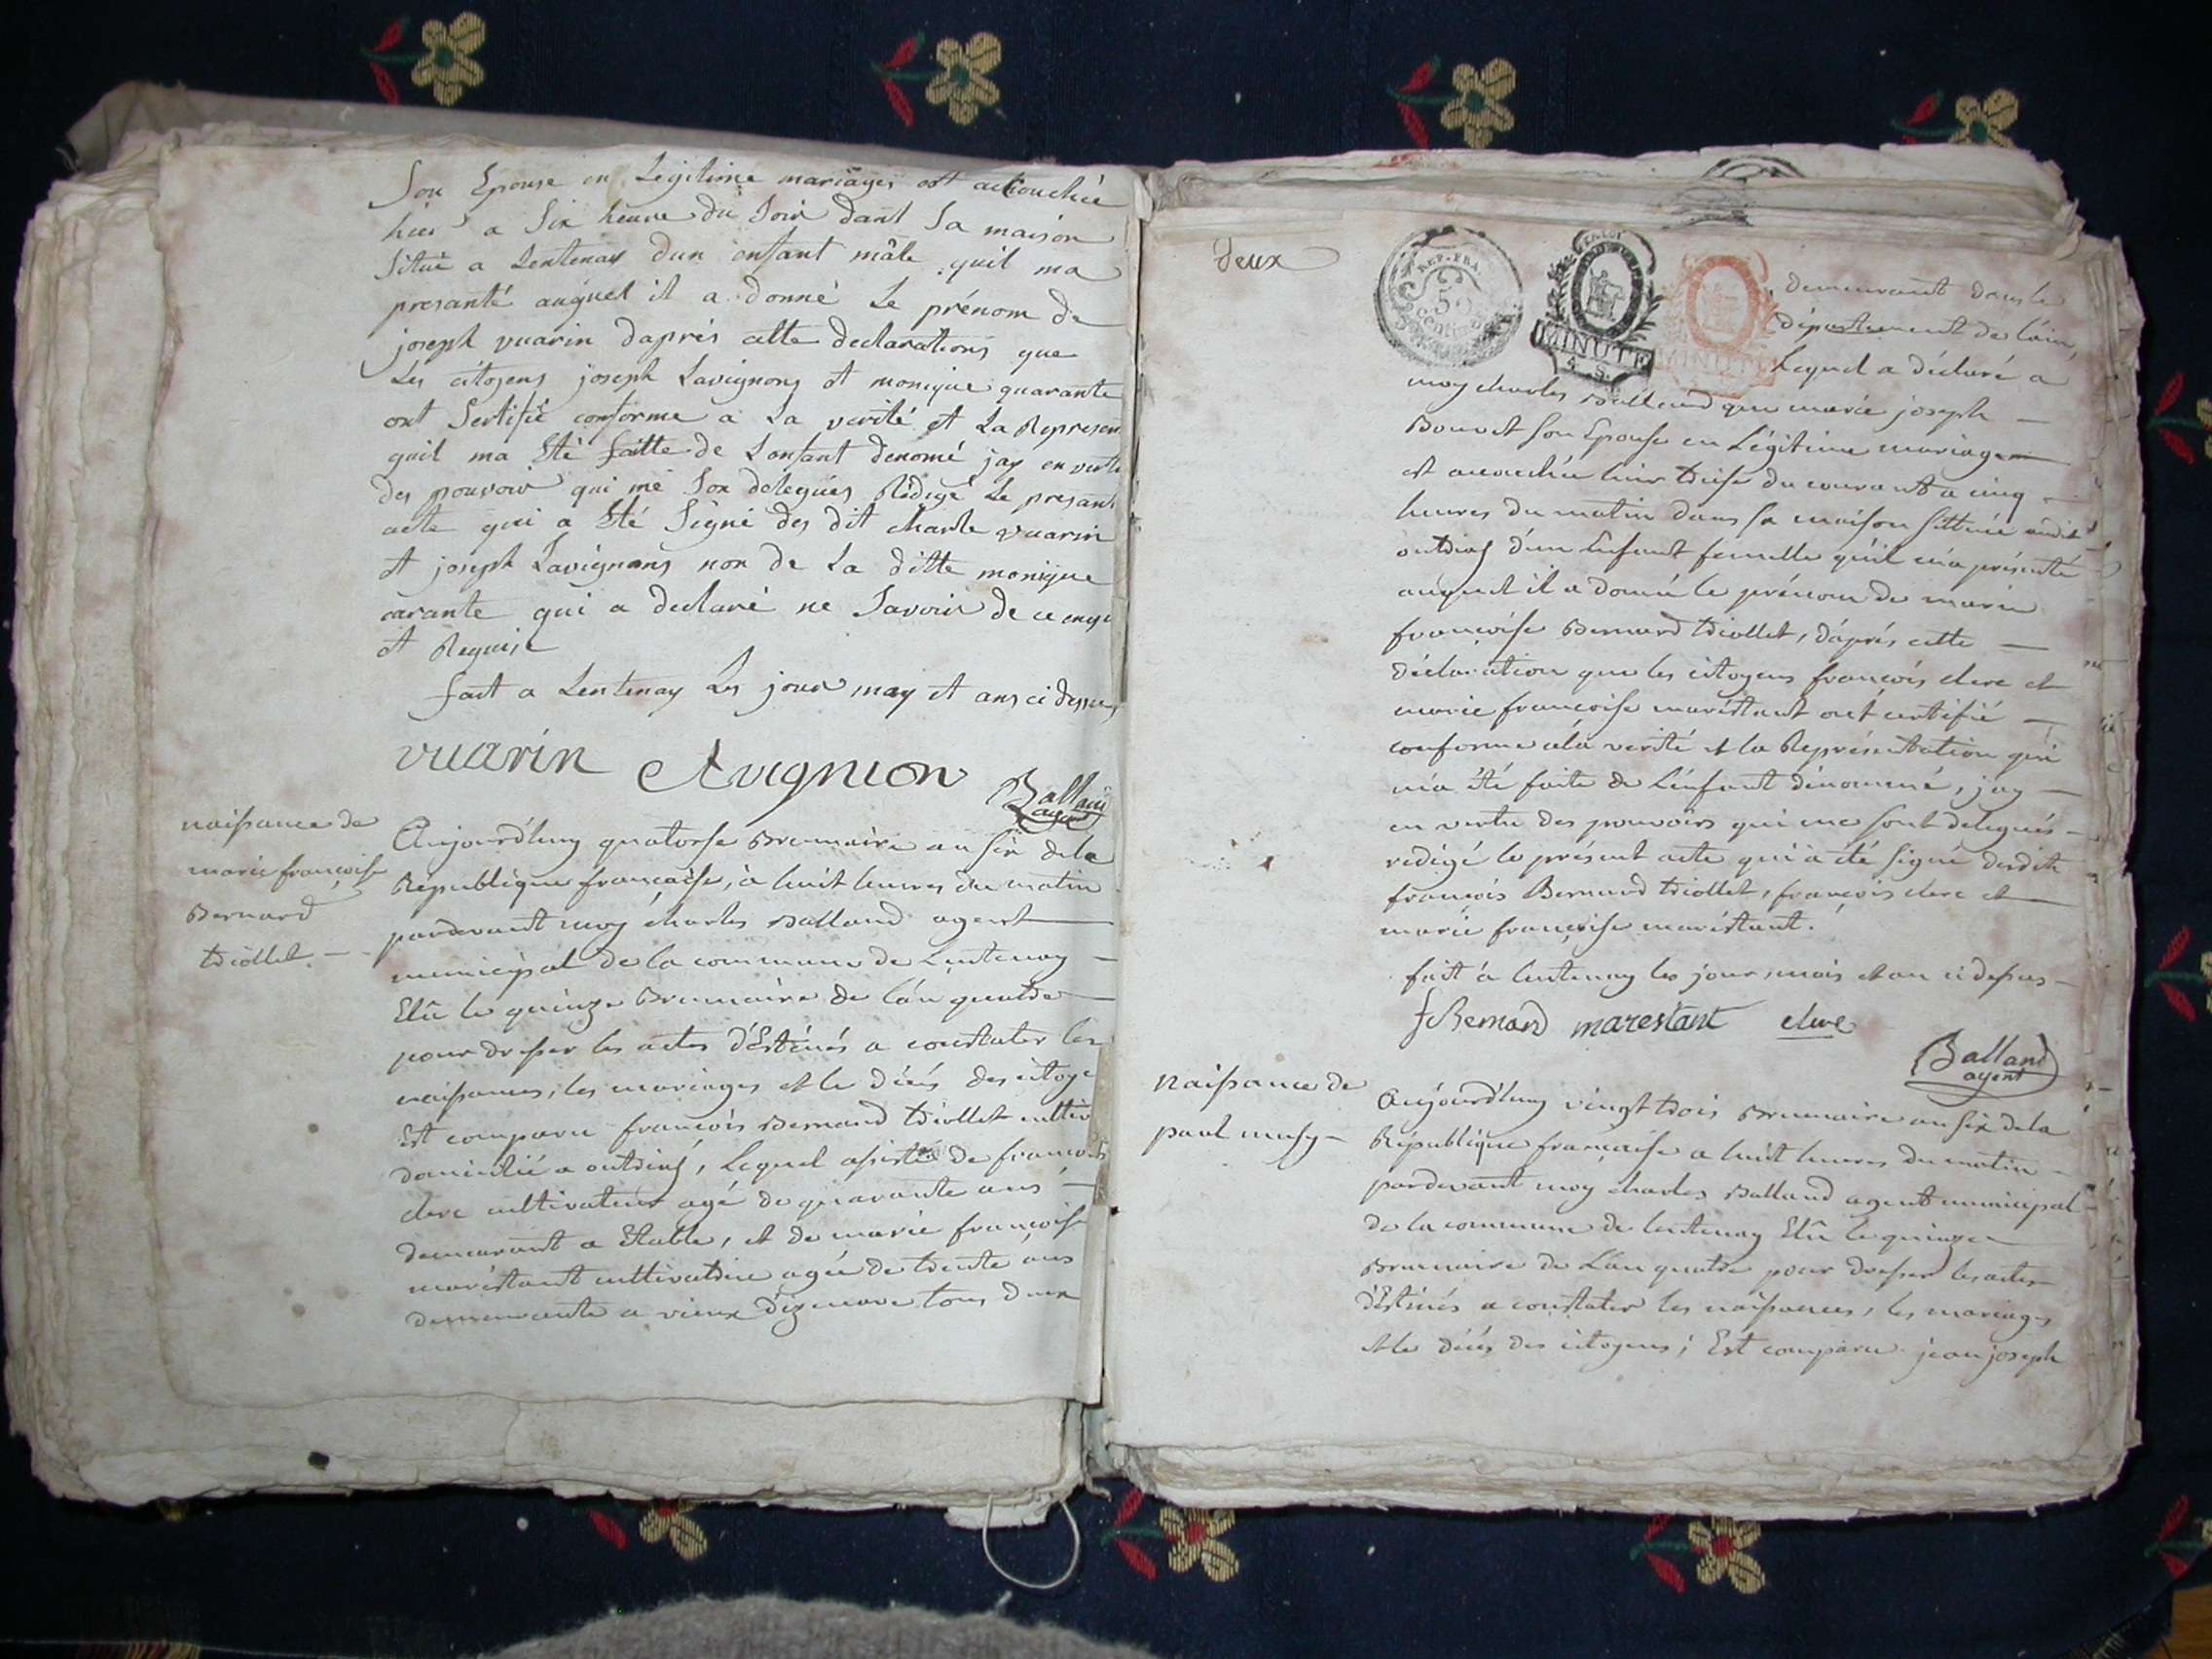 Son Epouse en Legitime mariages est accouchée
hier a Six heure du Soir dant Sa maison
Situé a Lentenay dun enfant mâle quil ma
presanté auquel il a donné Le prénom de
joseph vuarin daprés cette declarations que
Les citoyens joseph Lavignons et monique quarante
ont Sertifié conforme a La verité et La Represen
quil ma Eté faitte de Lenfant denomé jay en vertu
des pouvoir qui me Son delegués Rédigé Le presant
acte qui a Eté Signé des dit charle vuarin
et joseph Lavignons non de La ditte monique
carante qui a declaré ne Savoir de ce enqui
et Requise
fait a Lentenay Les jour may et ans ci dessus
vuarin Avignion
Balland
agent
naissance de
marie françoise
Bernard
triollet
Aujourd'huy quatorse Brumaire an six dela
République française, à huit heures du matin
pardevant moy charles Balland agent
municipal de la commune de Lentenay
Elû le quinze Brumaire de l'án quatre
pour dresser les actes d'Estinés a constater les
naissances, les mariages et le décés des citoye
Est comparu françois Bernard triollet cultiv
domicilié a outriaz, Lequel assisté de françois
clerc cultivateur agé de quarante ans
demeurant a Etable, et de marie françoise
maréstant cultivatrice agée de trente ans
demeurante a vieux d'izenave tous deux
deux
REP. FRA.
50
centimes
MINUTE
MINUTE
demeurant dans le
département de l'áin,
Lequel a déclaré a
moy charles Balland que marie joseph
Bouvet son Epouse en Légitime mariage
est accouchée hier treise du courant a cinq
heures du matin dans sa maison sittuée audit
outriaz d'un Enfant femelle qu'il m'a présenté
auquel il a donné le prénom de marie
françoise Bernard triollet, d'áprés cette
déclaration que les citoyens françois clerc et
marie françoise maréstant ont certifié
conforme a la verité et la Représentation qui
m'a été faite de L'enfant dénommé, jay
en vertu des pouvoirs qui me sont delegués
redigé le présent acte qui a été signé desdits
françois Bernard triollet, françois clerc et
marie françoise maréstant.
fait a lentenay les jour, mois et an ci dessus
f Bernard marestant clerc
Balland
agent
naissance de
paul musy
Aujourd'huy vingt trois Brumaire an six dela
République française a huit heures du matin
pardevant moy charles Balland agent municipal
de la commune de lentenay Elû le quinze
Brumaire de L'an quatre pour dresser les actes
d'éstinés a constater les naissances, les mariages
et le décés des citoyens; Est comparu jean joseph